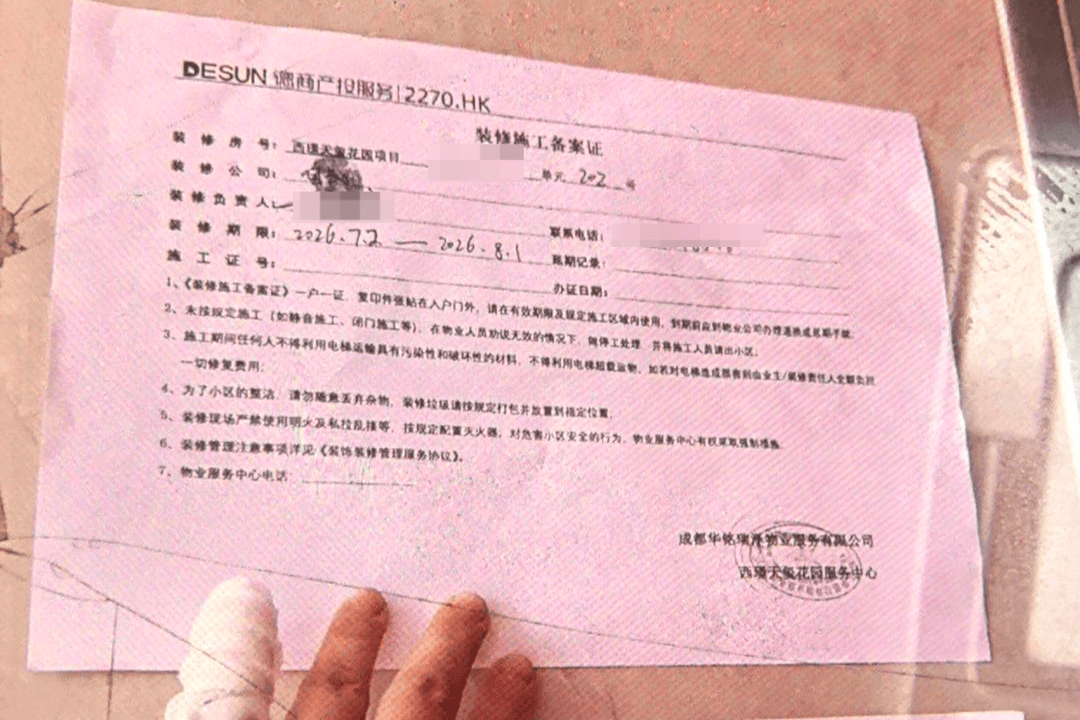 DESUN 德商产投服务|2270.HK
装修施工备案证
装修房号: 西璟天玺花园项目 单元 202 号
装修公司:
装修负责人: 联系电话:
装修期限: 2026.7.2 — 2026.8.1 账期记录:
施工证号: 办证日期:
1、《装修施工备案证》一户一证,复印件张贴在入户门外,请在有效期限及规定施工区域内使用,到期前应到物业公司办理退场或延期手续。
2、未按规定施工(如静音施工、闭门施工等),在物业人员劝说无效的情况下,做停工处理,并将施工人员请出小区。
3、施工期间任何人不得利用电梯运输具有污染性和破坏性的材料,不得利用电梯超载运物,如若对电梯造成损害则由业主/装修责任人全额负担
一切修复费用;
4、为了小区的整洁,请勿随意丢弃杂物,装修垃圾请按规定打包并放置到指定位置;
5、装修现场严禁使用明火及私拉乱接等,按规定配置灭火器,对危害小区安全的行为,物业服务中心有权采取强制措施.
6、装修管理注意事项详见《装饰装修管理服务协议》。
7、物业服务中心电话
成都华铭瑞泽物业服务有限公司
西璟天玺花园服务中心